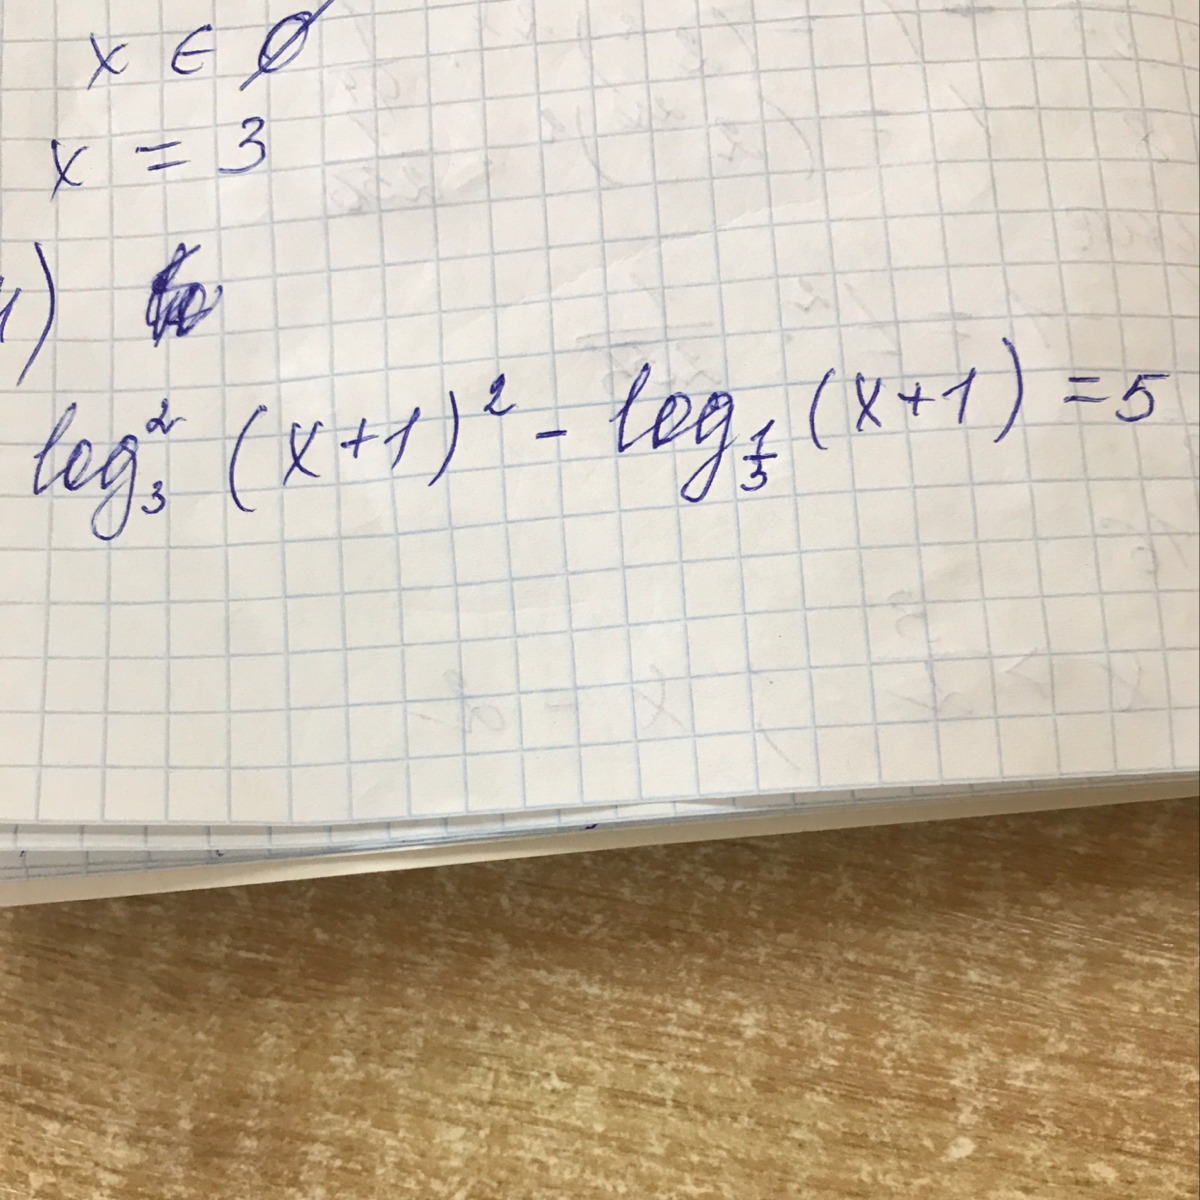 x ∈ ∅
x = 3
log₃² (x+1)² - log_{1/3} (x+1) = 5